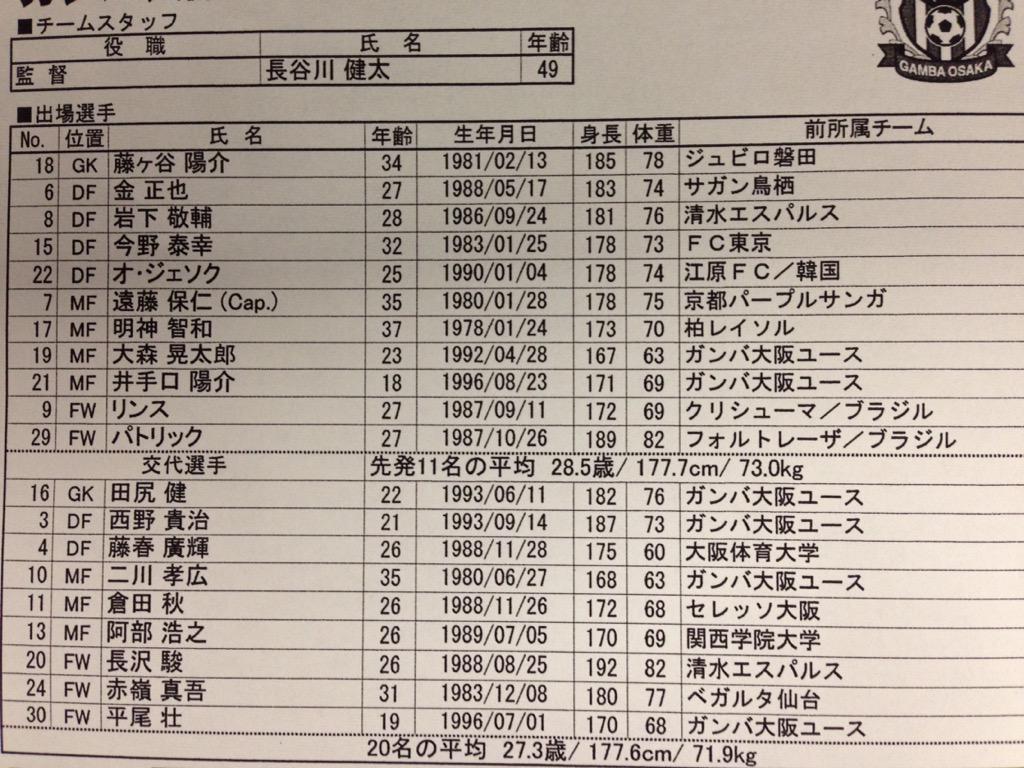 ■チームスタッフ
役 職 氏 名 年齢
監 督 長谷川 健太 49
GAMBA OSAKA
■出場選手
No. 位置 氏 名 年齢 生年月日 身長 体重 前所属チーム
18 GK 藤ヶ谷 陽介 34 1981/02/13 185 78 ジュビロ磐田
6 DF 金 正也 27 1988/05/17 183 74 サガン鳥栖
8 DF 岩下 敬輔 28 1986/09/24 181 76 清水エスパルス
15 DF 今野 泰幸 32 1983/01/25 178 73 ＦＣ東京
22 DF オ・ジェソク 25 1990/01/04 178 74 江原ＦＣ／韓国
7 MF 遠藤 保仁 (Cap.) 35 1980/01/28 178 75 京都パープルサンガ
17 MF 明神 智和 37 1978/01/24 173 70 柏レイソル
19 MF 大森 晃太郎 23 1992/04/28 167 63 ガンバ大阪ユース
21 MF 井手口 陽介 18 1996/08/23 171 69 ガンバ大阪ユース
9 FW リンス 27 1987/09/11 172 69 クリシューマ／ブラジル
29 FW パトリック 27 1987/10/26 189 82 フォルトレーザ／ブラジル
交代選手 先発11名の平均 28.5歳/ 177.7cm/ 73.0kg
16 GK 田尻 健 22 1993/06/11 182 76 ガンバ大阪ユース
3 DF 西野 貴治 21 1993/09/14 187 73 ガンバ大阪ユース
4 DF 藤春 廣輝 26 1988/11/28 175 60 大阪体育大学
10 MF 二川 孝広 35 1980/06/27 168 63 ガンバ大阪ユース
11 MF 倉田 秋 26 1988/11/26 172 68 セレッソ大阪
13 MF 阿部 浩之 26 1989/07/05 170 69 関西学院大学
20 FW 長沢 駿 26 1988/08/25 192 82 清水エスパルス
24 FW 赤嶺 真吾 31 1983/12/08 180 77 ベガルタ仙台
30 FW 平尾 壮 19 1996/07/01 170 68 ガンバ大阪ユース
20名の平均 27.3歳/ 177.6cm/ 71.9kg